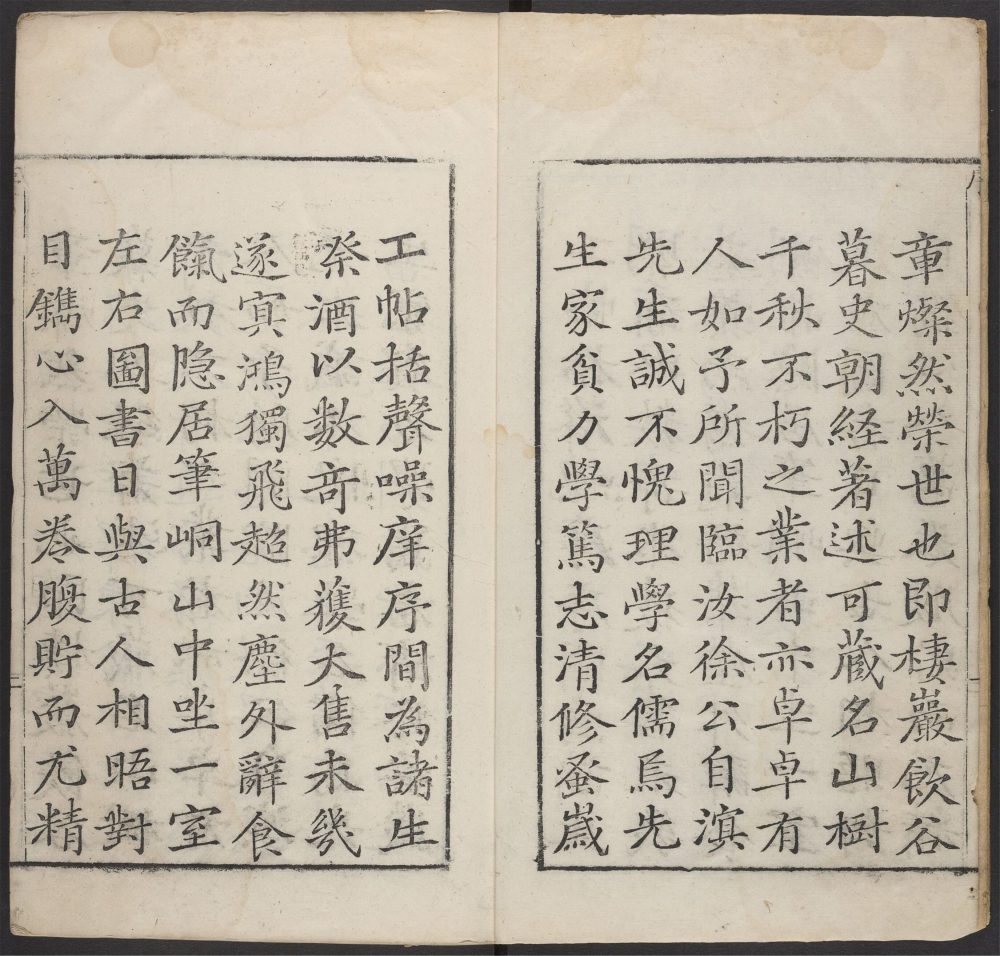 章燦然榮世也即棲巖飲谷
暮史朝経著述可藏名山樹
千秋不朽之業者亦卓卓有
人如予所聞臨汝徐公自滇
先生誠不愧理學名儒焉先
生家貧力學篤志清修蚤歲
工帖括聲噪庠序間為諸生
祭酒以数竒弗獲大售未幾
遂冥鴻獨飛超然塵外辭食
餼而隐居筆峒山中坐一室
左右圖書日與古人相晤對
目鐫心入萬巻腹貯而尤精